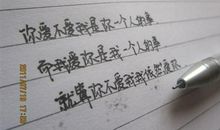 你爱不爱我是你一个人的事
而我爱你是我一个人的事
就算你不爱我我依然爱你